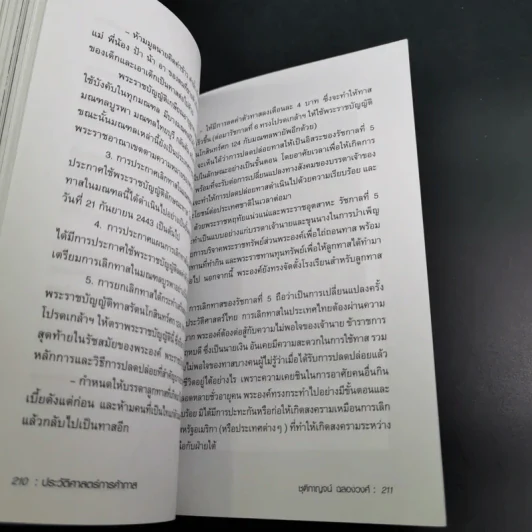 – ห้ามมูลนายคิดค่าข้าว
แม่ พี่น้อง ป้า น้า อา ของ
ของเด็กและเอาเด็กเป็นทาสต่อไป
พระราชบัญญัติ
ใช้บังคับในทุกมณฑล
มณฑลบูรพา มณฑลไทรบุรี
ขณะนั้นมณฑลเหล่านี้ยังเป็น
พระราชอาณาเขตตามความ
3. การประกาศเลิกทาส
ประกาศใช้พระราชบัญญัติ
ทาสในมณฑลนี้ได้ดำเนินไปอย่าง
วันที่ 21 กันยายน 2443 เป็นต้นไป
4. การประกาศแผนการเลิกทาส
ได้มีการประกาศใช้พระราชบัญญัติ
เตรียมการเลิกทาสในมณฑลบูรพา
5. การยกเลิกทาสได้กระทำ
พระราชบัญญัติทาสรัตนโกสินทรศก
โปรดเกล้าฯ ให้ตราพระราชบัญญัติ
สุดท้ายในรัชสมัยของพระองค์
หลักการและวิธีการปลดปล่อยที่สำคัญ
– กำหนดให้บรรดาลูกทาสที่
เบี้ยตั้งแต่ก่อน และห้ามคนที่เป็นไท
แล้วกลับไปเป็นทาสอีก
210 : ประวัติศาสตร์การค้าทาส
– ให้มีการลดค่าตัวทาสลงเดือนละ 4 บาท ซึ่งจะทำให้ทาส
เร็วขึ้น (ต่อมารัชกาลที่ 6 ทรงโปรดเกล้าฯ ให้ใช้พระราชบัญญัติ
ศก 124 กับมณฑลพายัพอีกด้วย)
เห็นได้ว่าการปลดปล่อยทาสให้เป็นอิสระของรัชกาลที่ 5
ในลักษณะอย่างเป็นขั้นตอน โดยอาศัยเวลาเพื่อให้เกิดการ
พร้อมที่จะรับต่อการเปลี่ยนแปลงทางสังคมของบรรดาเจ้าของ
และทำให้การปลดปล่อยทาสดำเนินไปด้วยความเรียบร้อย และ
โยชน์ต่อประเทศชาติในเวลาต่อมา
ด้วยพระราชหฤทัยแน่วแน่และพระราชอุตสาหะ รัชกาลที่ 5
ำเป็นแบบอย่างแก่บรรดาเจ้านายและขุนนางในการบำเพ็ญ
การบริจาคพระราชทรัพย์ส่วนพระองค์เพื่อไถ่ถอนทาส พร้อม
ที่ทำกิน และพระราชทานทุนทรัพย์เพื่อให้ลูกทาสได้ทำมา
ไป นอกจากนี้ พระองค์ยังทรงจัดตั้งโรงเรียนสำหรับลูกทาส
การเลิกทาสของรัชกาลที่ 5 ถือว่าเป็นการเปลี่ยนแปลงครั้ง
ประวัติศาสตร์ไทย การเลิกทาสในประเทศไทยต้องผ่านความ
าก พระองค์ต้องต่อสู้กับความไม่พอใจของเจ้านาย ข้าราชการ
หบดี ซึ่งเป็นนายเงิน อันเคยมีความสะดวกในการใช้ทาส รวม
อใจของทาสบางคนผู้ไม่รู้ว่าเมื่อได้รับการปลดปล่อยแล้ว
ชีวิตอยู่ได้อย่างไร เพราะความเคยชินในการอาศัยคนอื่นกิน
อดหลายชั่วอายุคน พระองค์ทรงกระทำไปอย่างมีขั้นตอนและ
บร้อย มิได้มีการปะทะกันหรือก่อให้เกิดสงครามเหมือนการเลิก
ัฐอเมริกา (หรือประเทศต่างๆ) ที่ทำให้เกิดสงครามระหว่าง
นือกับฝ่ายใต้
ชุติกาญจน์ ฉลองวงศ์ : 211